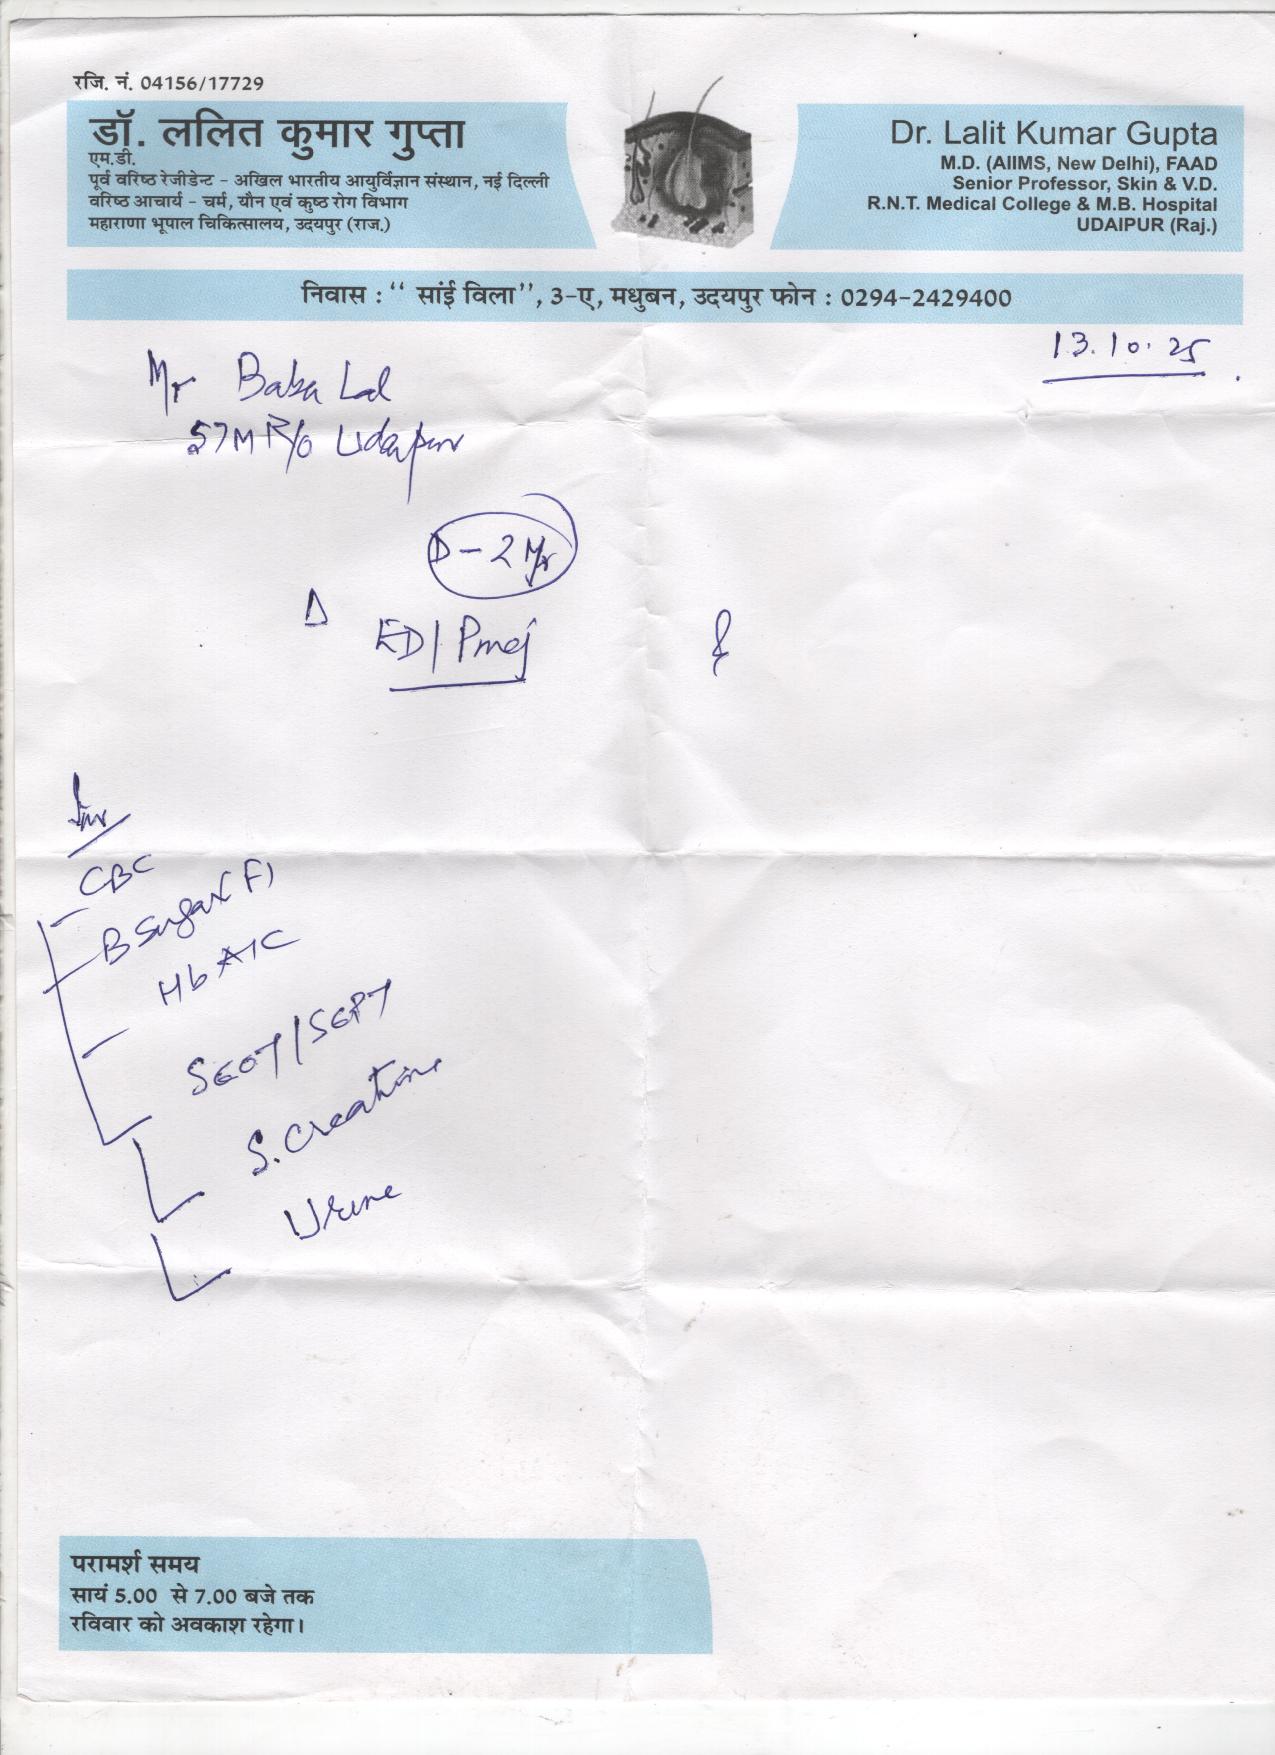 रजि. नं. 04156/17729
डॉ. ललित कुमार गुप्ता
एम.डी.
पूर्व वरिष्ठ रेजीडेन्ट - अखिल भारतीय आयुर्विज्ञान संस्थान, नई दिल्ली
वरिष्ठ आचार्य - चर्म, यौन एवं कुष्ठ रोग विभाग
महाराणा भूपाल चिकित्सालय, उदयपुर (राज.)
Dr. Lalit Kumar Gupta
M.D. (AIIMS, New Delhi), FAAD
Senior Professor, Skin & V.D.
R.N.T. Medical College & M.B. Hospital
UDAIPUR (Raj.)
निवास : “ सांई विला”, 3-ए, मधुबन, उदयपुर फोन : 0294-2429400
13.10.25
Mr Baba Lal
57M R/o Udaipur
D-2
Δ
ED/
Inv
CBC
B Sugar (F)
HbA1C
SGOT/SGPT
S. Creatinine
Urine
परामर्श समय
सायं 5.00 से 7.00 बजे तक
रविवार को अवकाश रहेगा।